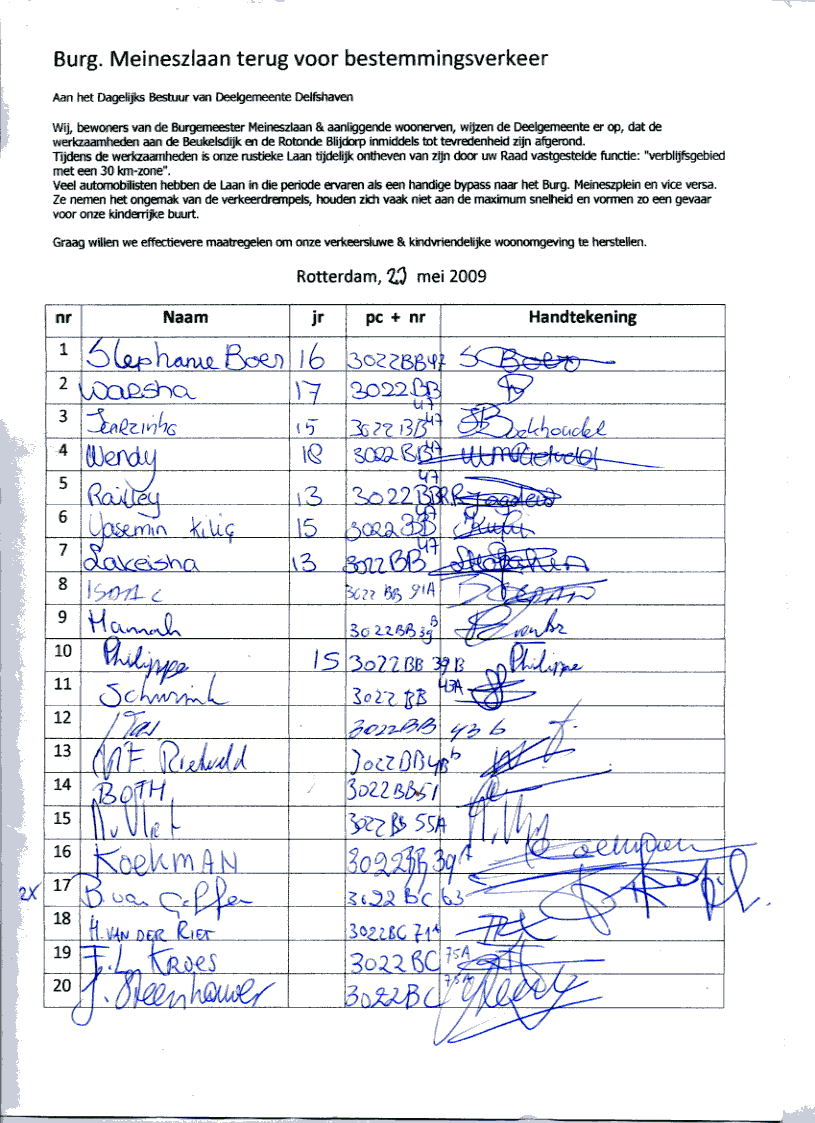 Burg. Meineszlaan terug voor bestemmingsverkeer
Aan het Dagelijks Bestuur van Deelgemeente Delfshaven
Wij, bewoners van de Burgemeester Meineszlaan & aanliggende woonerven, wijzen de Deelgemeente er op, dat de
werkzaamheden aan de Beukelsdijk en de Rotonde Blijdorp inmiddels tot tevredenheid zijn afgerond.
Tijdens de werkzaamheden is onze rustieke Laan tijdelijk ontheven van zijn door uw Raad vastgestelde functie: "verblijfsgebied
met een 30 km-zone".
Veel automobilisten hebben de Laan in die periode ervaren als een handige bypass naar het Burg. Meineszplein en vice versa.
Ze nemen het ongemak van de verkeerdrempels, houden zich vaak niet aan de maximum snelheid en vormen zo een gevaar
voor onze kinderrijke buurt.
Graag willen we effectievere maatregelen om onze verkeersluwe & kindvriendelijke woonomgeving te herstellen.
Rotterdam, mei 2009
nr Naam jr pc + nr Handtekening
1 Stephanie Boer 16 3022BB47 S Boer
2 Waesha 17 3022BB 47
3 15 3022BB 47 Bokhoudel
4 Wendy 18 3022BB 47
5 Railey 13 3022BB 47
6 Yasemin Kiliç 15 3022BB 47
7 Lakeisha 13 3022BB 47
8 3022 BB 91A
9 Hannah 3022BB 39 B
10 Philippe 15 3022BB 39 B Philippe
11 Schurink 3022 BB 43A
12 3022BB 43 b
13 Rietveld 3022BB
14 BOTH 3022BB51
15 3022 BB 55A
16 KOEKMAN 3022BB 39A
2X 17 B. van Geffen 3022 BC 63
18 H. VAN DER RIET 3022BC 71A
19 F.L. KROES 3022BC 75A
20 J. Steenhouwer 3022BC 75A